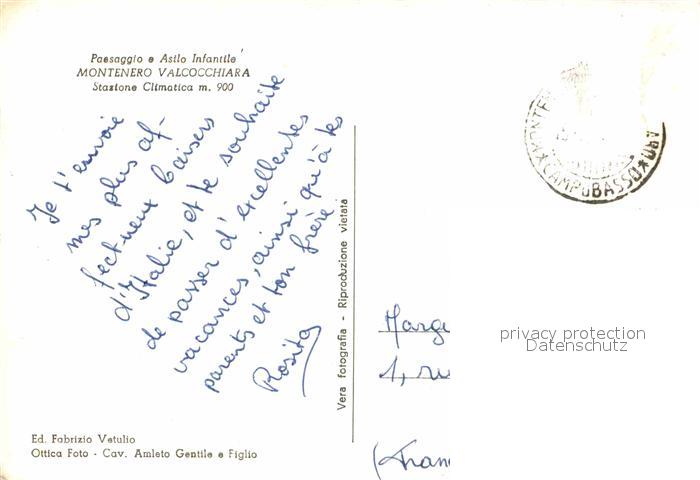 Paesaggio e Asilo Infantile
MONTENERO VALCOCCHIARA
Stazione Climatica m. 900
Je t'envoie
mes plus af-
fectueux baisers
d'Italie, et te souhaite
de passer d'excellentes
vacances, ainsi qu'à tes
parents et ton frère
Rosita
Vera fotografia - Riproduzione vietata
CAMPOBASSO
Marge
1, ru
(Fran
privacy protection
Datenschutz
Ed. Fabrizio Vetulio
Ottica Foto - Cav. Amleto Gentile e Figlio